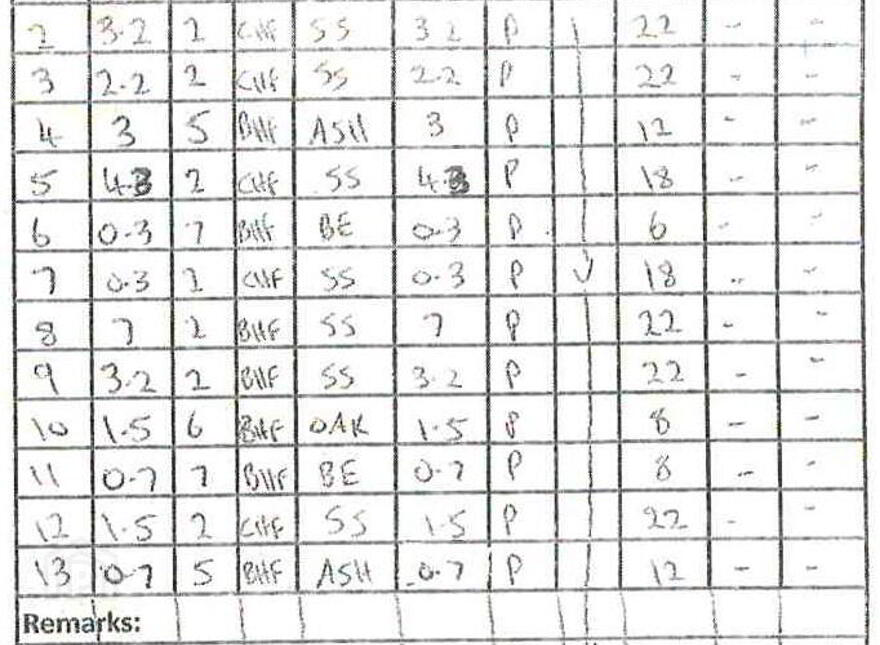 2 3.2 2 CHF SS 3.2 P 22 - -
3 2.2 2 CHF SS 2.2 P 22 - -
4 3 5 BHF ASH 3 P 12 - -
5 4.3 2 CHF SS 4.3 P 18 - -
6 0.3 7 BHF BE 0.3 P 6 - -
7 0.3 2 CHF SS 0.3 P 18 - -
8 7 2 BHF SS 7 P 22 - -
9 3.2 2 BHF SS 3.2 P 22 - -
10 1.5 6 BHF OAK 1.5 P 8 - -
11 0.7 7 BHF BE 0.7 P 8 - -
12 1.5 2 CHF SS 1.5 P 22 - -
13 0.7 5 BHF ASH 0.7 P 12 - -
Remarks: